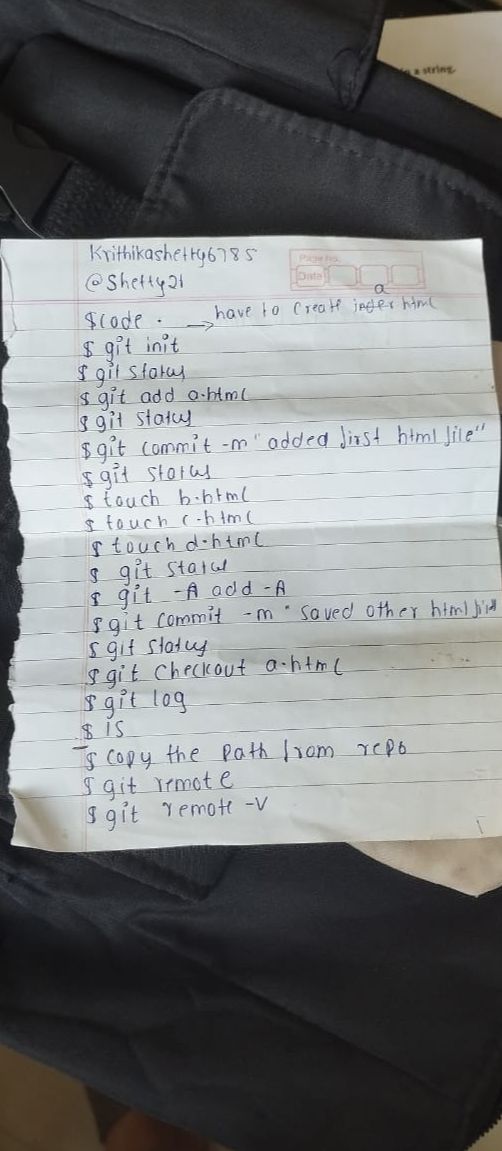 n a string.
Krithikashetty6785
Page No.
@Shetty21
Date
a
$code . → have to Create html
$ git init
$ git status
$ git add a.html
$ git status
$ git commit -m "added first html file"
$ git status
$ touch b.html
$ touch c.html
$ touch d.html
$ git status
$ git -A add -A
$ git commit -m " saved other html
$ git status
$ git checkout a.html
$ git log
$ ls
$ copy the path from repo
$ git remote
$ git remote -v